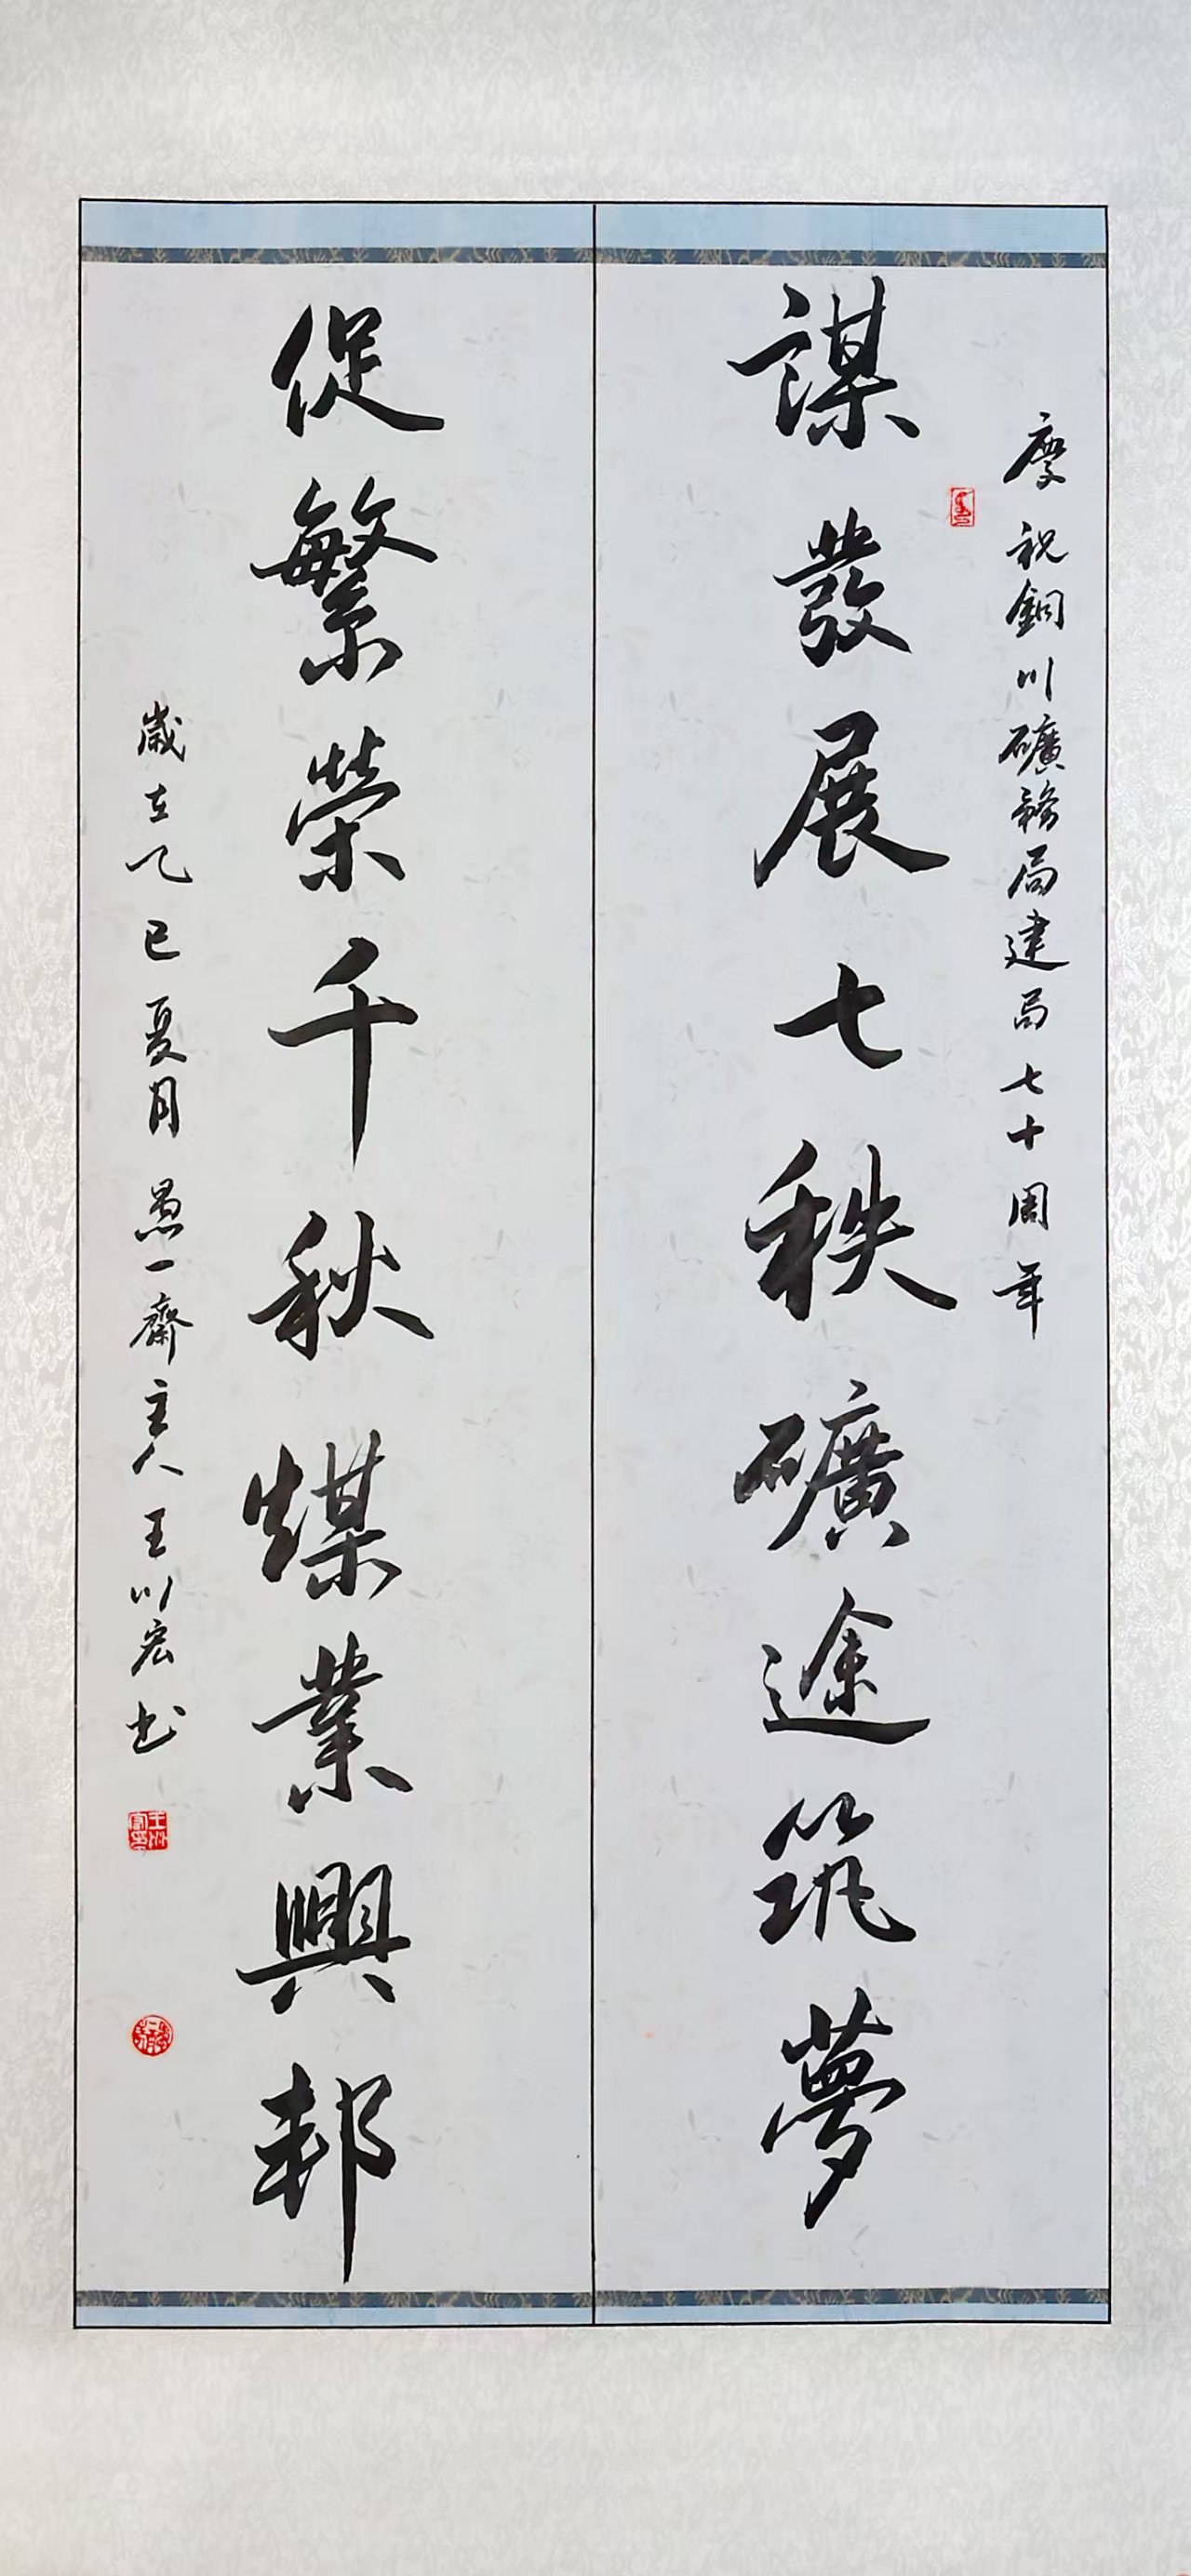 慶祝銅川礦務局建局七十周年
謀發展七秩礦途筑夢
促繁榮千秋煤業興邦
歲在乙巳夏月愚一齋主人王川宏书